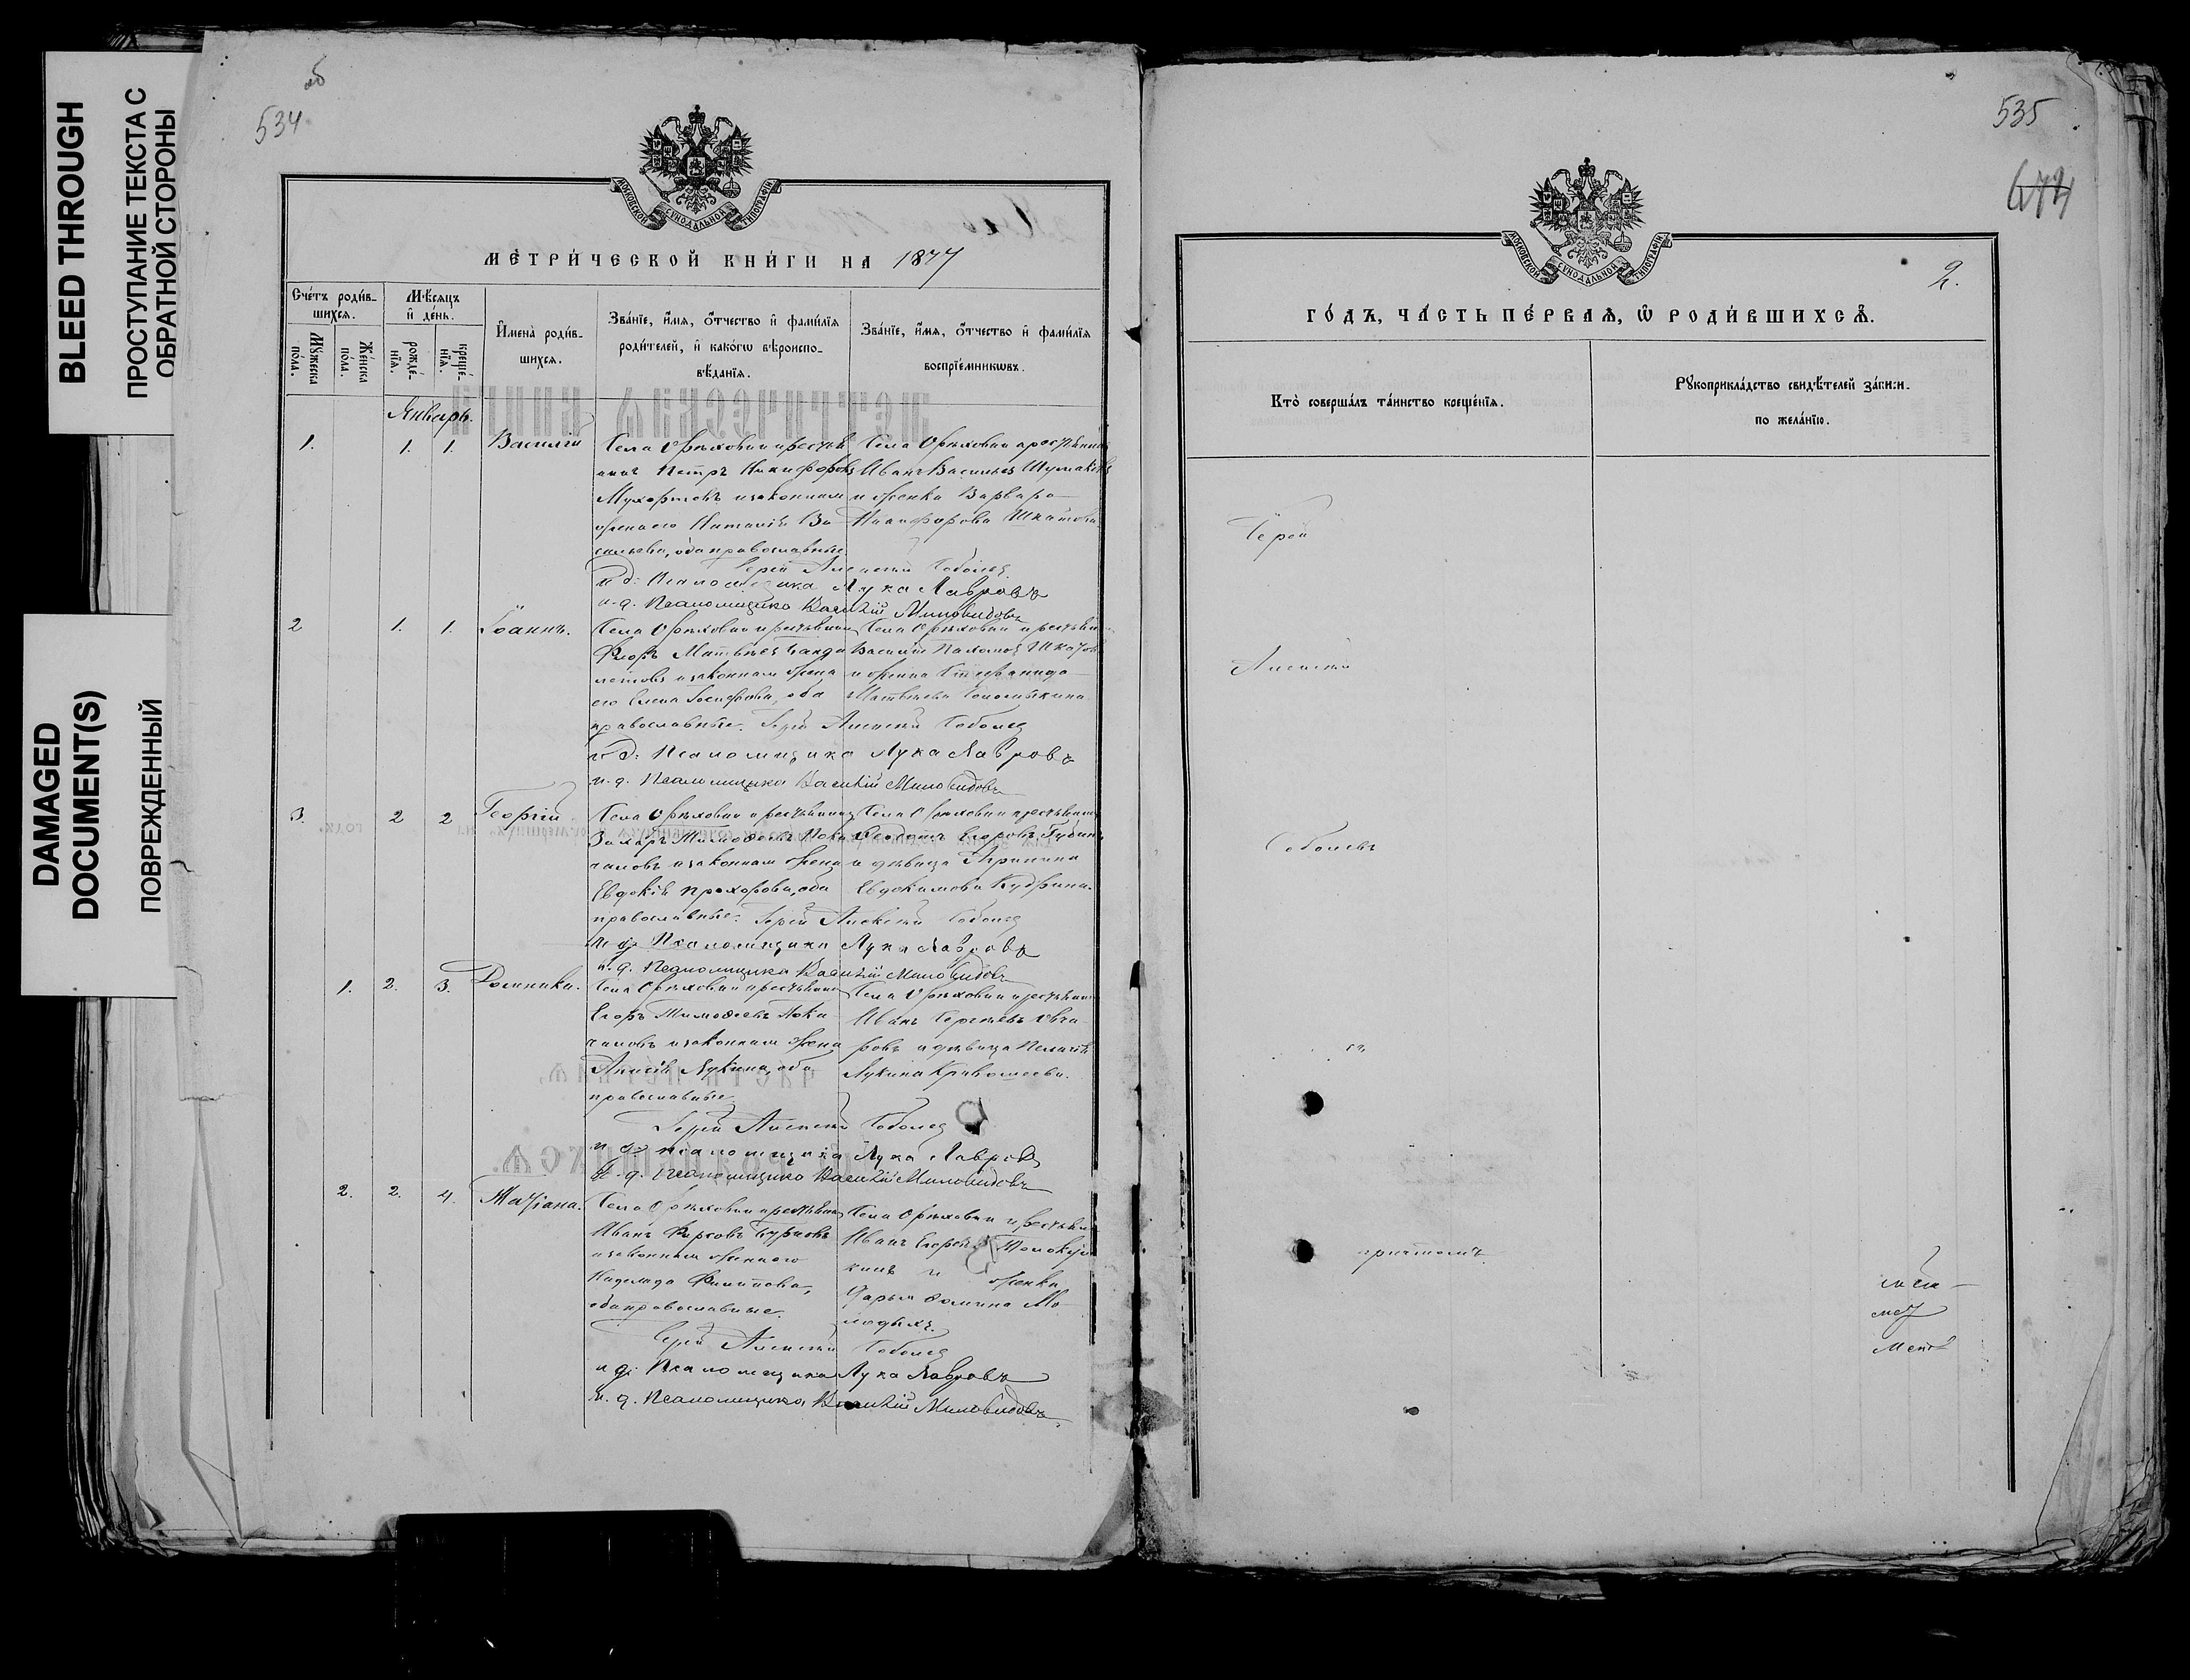 BLEED THROUGH
ПРОСТУПАНИЕ ТЕКСТА С
ОБРАТНОЙ СТОРОНЫ
DAMAGED
DOCUMENT(S)
ПОВРЕЖДЕННЫЙ
534
МОСКОВСКОЙ СѴНОДАЛЬНОЙ ТИПОГРАФІИ
МЕТРИ́ЧЕСКОЙ КНИ́ГИ НА 1877
Сче́тъ роди́в-
шихсѧ.
Мꙋ́жеска
по́ла.
Же́нска
по́ла.
Мѣ́сѧцъ
и҆ де́нь.
рожде́-
нїѧ.
креще́-
нїѧ.
И҆мена̀ роди́в-
шихсѧ.
Зва́нїе, и҆́мѧ, ѻ҆́тчество и҆ фами́лїѧ
роди́телей, и҆ како́гѡ вѣроиспо-
вѣ́данїѧ.
Зва́нїе, и҆́мѧ, ѻ҆́тчество и҆ фами́лїѧ
воспрїе́мникѡвъ.
Январь.
1. 1. 1. Василій
Села Орѣховки крестья
нинъ Петръ Никифоровъ
Мухортовъ и законная
жена его Наталія Ва
сильева, оба православные.
Села Орѣховки крестьянинъ
Иванъ Васильевъ Шумаковъ
и женка Варвара
Никифорова Шкатова.
Іерей Алексій Соболевъ
и. д. Псаломщика Лука Лавровъ
и. д. Псаломщика Василій Миловидовъ
2 1. 1. Іоаннъ.
Села Орѣховки крестьянинъ
Флоръ Матвѣевъ
и законная жена
его Елена Іосифова, оба
православные.
Села Орѣховки крестьянинъ
Василій Пахомовъ Шкатовъ
и женка Стефанида
Матвѣева
Іерей Алексій Соболевъ
и. д. Псаломщика Лука Лавровъ
и. д. Псаломщика Василій Миловидовъ
3. 2 2 Георгій
Села Орѣховки крестьянинъ
Захаръ Тимоѳеевъ Пока
чаловъ и законная жена
Евдокія Прохорова, оба
православные.
Села Орѣховки крестьянинъ
Ѳеодотъ Егоровъ
и дѣвица Агрипина
Евдокимова Кудрина.
Іерей Алексій Соболевъ
и. д. Псаломщика Лука Лавровъ
и. д. Псаломщика Василій Миловидовъ
1. 2. 3. Домника.
Села Орѣховки крестьянинъ
Егоръ Тимоѳеевъ Пока
чаловъ и законная жена
Анисія Лукина, оба
православные
Села Орѣховки крестьянинъ
Иванъ Сергѣевъ Овча
ровъ и дѣвица Пелагія
Лукина Кривошеева.
Іерей Алексій Соболевъ
и. д. псаломщика Лука Лавровъ
и. д. Псаломщика Василій Миловидовъ
2. 2. 4. Татіана.
Села Орѣховки крестьянинъ
Иванъ Фирсовъ
и законная жена его
Надежда Филипова,
оба православные.
Села Орѣховки крестьянинъ
Иванъ Егоровъ
и женка
Дарья Фомина Мо
лодыхъ.
Іерей Алексій Соболевъ
и. д. Псаломщика Лука Лавровъ
и. д. Псаломщика Василій Миловидовъ
535
2.
МОСКОВСКОЙ СѴНОДАЛЬНОЙ ТИПОГРАФІИ
ГО́ДЪ, ЧА́СТЬ ПЕ́РВАѦ, Ѡ҆ РОДИ́ВШИХСѦ.
Кто̀ соверша́лъ та́инство креще́нїѧ.
Рꙋкоприкла́дство свидѣ́телей за́писи
по жела́нїю.
Іерей
Алексій
Соболевъ
съ
причтомъ